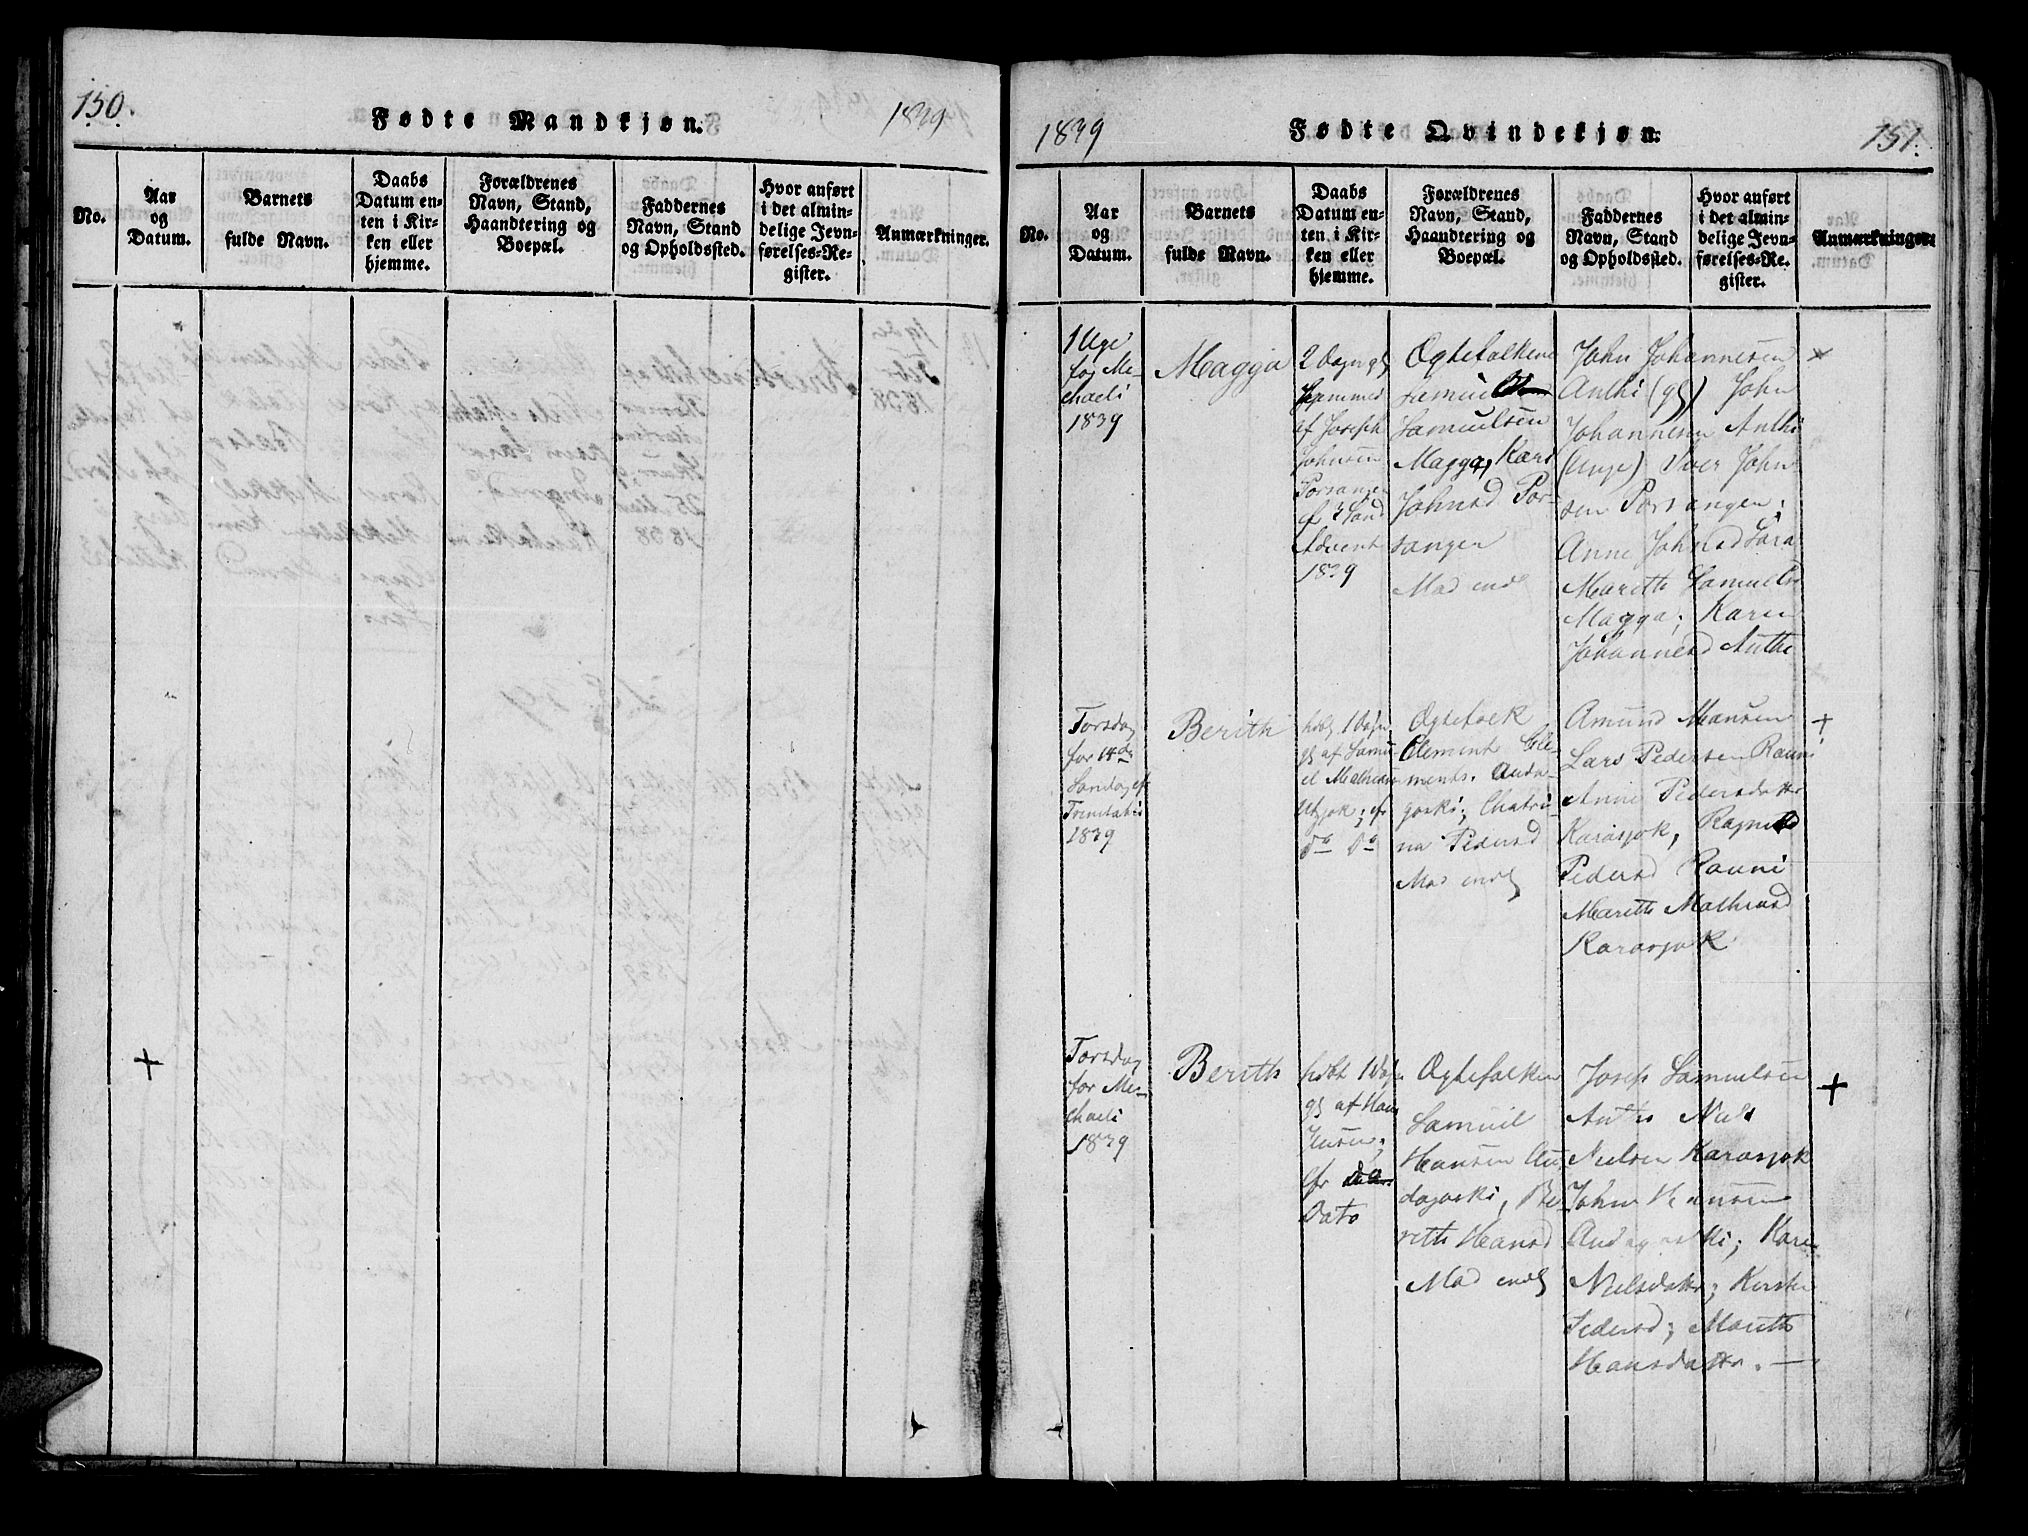 150.
Fødte Mandkjøn.
1839
No.
Aar
og
Datum.
Barnets
fulde Navn.
Daabs
Datum en-
ten i Kir-
ken eller
hjemme.
Forældrenes
Navn, Stand,
Haandtering og
Boepæl.
Faddernes
Navn, Stand
og Opholdssted.
Hvor anført
i det almin-
delige Jevn-
førelses-Re-
gister.
Anmærkninger.
+
1839
Fødte Qvindekjøn.
151.
No.
Aar
og
Datum.
Barnets
fulde Navn.
Daabs
Datum en-
ten i Kir-
ken eller
hjemme.
Forældrenes
Navn, Stand,
Haandtering og
Boepæl.
Faddernes
Navn, Stand
og Opholdssted.
Hvor anført
i det almin-
delige Jevn-
førelses-Re-
gister.
Anmærkninger.
1 Uge
før Mi-
chaeli
1839
Magga
2 Dage gl
hjemmed
af Joseph
Johnsen
Porsanger
ef 3 Sønd
Advent
1839
Ogtefolkene
Samuel
Samuelsen
Magga, Karn
Johnsd Por-
sanger
Mod endl
John Johannesen
Anthi (gl) John
Johannesen Anthi
(Unge) Iver John
sen Porsangen;
Anne Johnsd Sara
Mareth Samuelsd
Magga; Karen
Johannesd Anthi
×
Torsdag
før 14de
Søndag eft
Trinitatis
1839
Berith
hdbt 1 Dagn
gl af Samu-
el Mathiesn
Utsjok; ef
Do Do
Ogtefolk
Clement Cle-
ments. Anda-
gorski; Chatri-
na Pedersd
Mod endl
Amund Monsen
Lars Pedersen Rauni
Anne Pedersdatter
Karasjok, Ragnild
Pedersd Rauni
Mareth Mathisd
Karasjok
+
Torsdag
før Mi-
chaeli
1839
Berith
hdbt 1 Dagn
gl af Hans
Jensen;
efr
Dato
Ogtefolkene
Samuel
Hansen An-
dagorski, Be-
reth Hansd
Mod endl
Joseph Samuelsen
Anthi Niels
Nielsen Karasjok
John Hansen
Andagorski; Karen
Nielsdattr; Kirsten
Pedersd; Mareth
Hansdattr. —
+